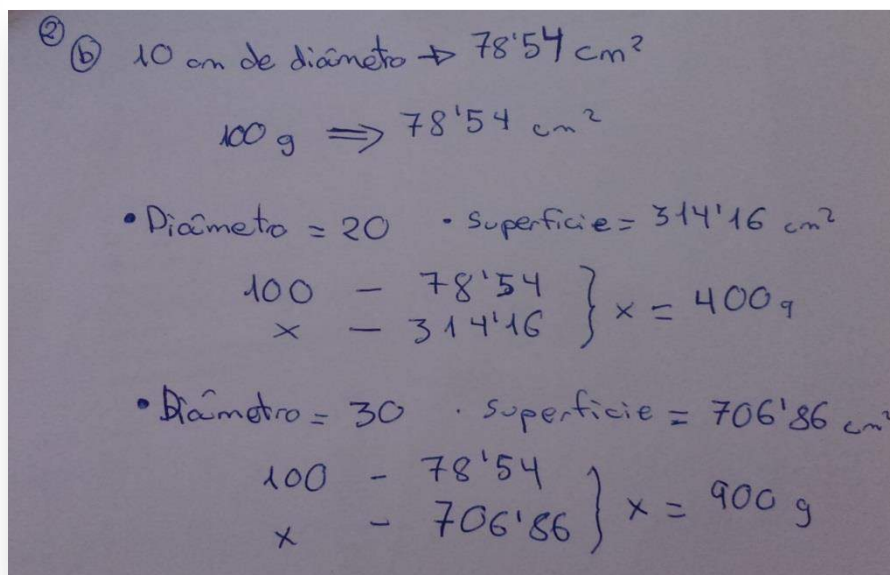 ②
ⓑ 10 cm de diámetro → 78'54 cm²
100 g ⟹ 78'54 cm²
• Diámetro = 20 · Superficie = 314'16 cm²
100 – 78'54
x – 314'16 } x = 400 g
• Diámetro = 30 · Superficie = 706'86 cm²
100 – 78'54
x – 706'86 } x = 900 g